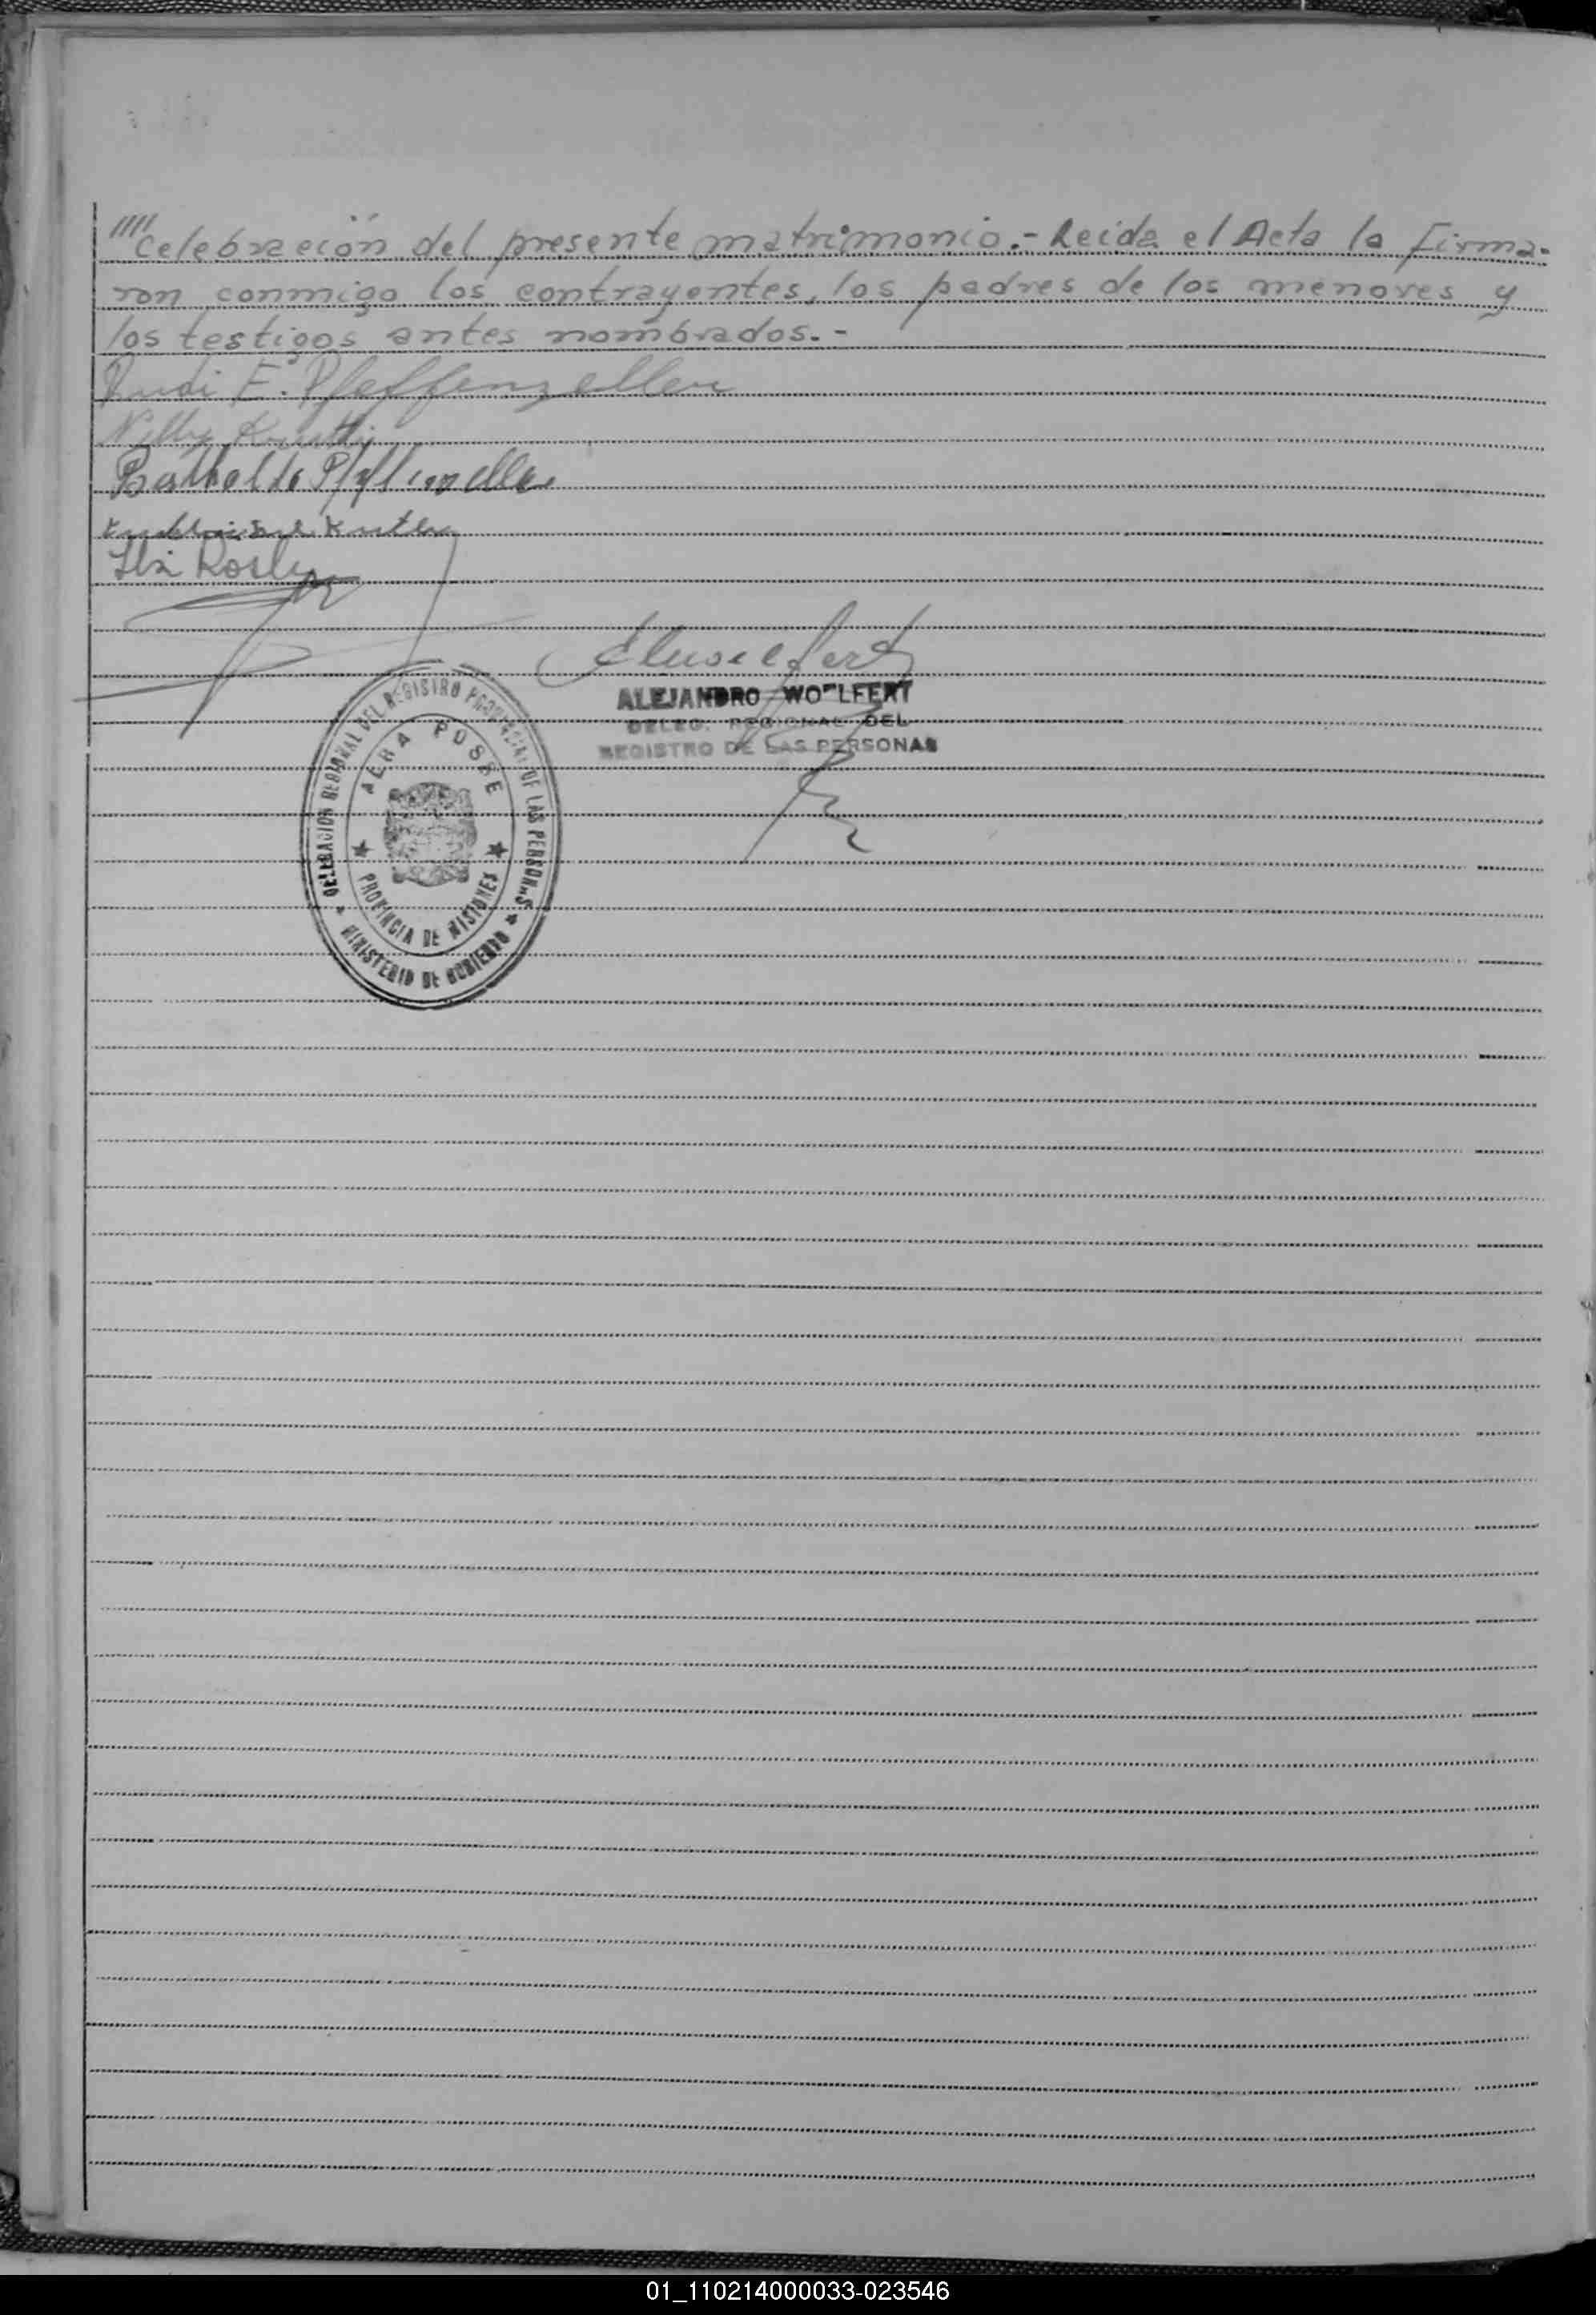 //// Celebración del presente matrimonio.- Leida el Acta la firma-
ron conmigo los contrayentes, los padres de los menores y
los testigos antes nombrados.-
Rudi E. Pfeffenzeller
Nelly
ALEJANDRO WOELFERT
DELEG. REGIONAL DEL
REGISTRO DE LAS PERSONAS
DELEGACION REGIONAL DEL REGISTRO PROVINCIAL DE LAS PERSONAS
ALBA POSSE
PROVINCIA DE MISIONES
MINISTERIO DE GOBIERNO
01_110214000033-023546